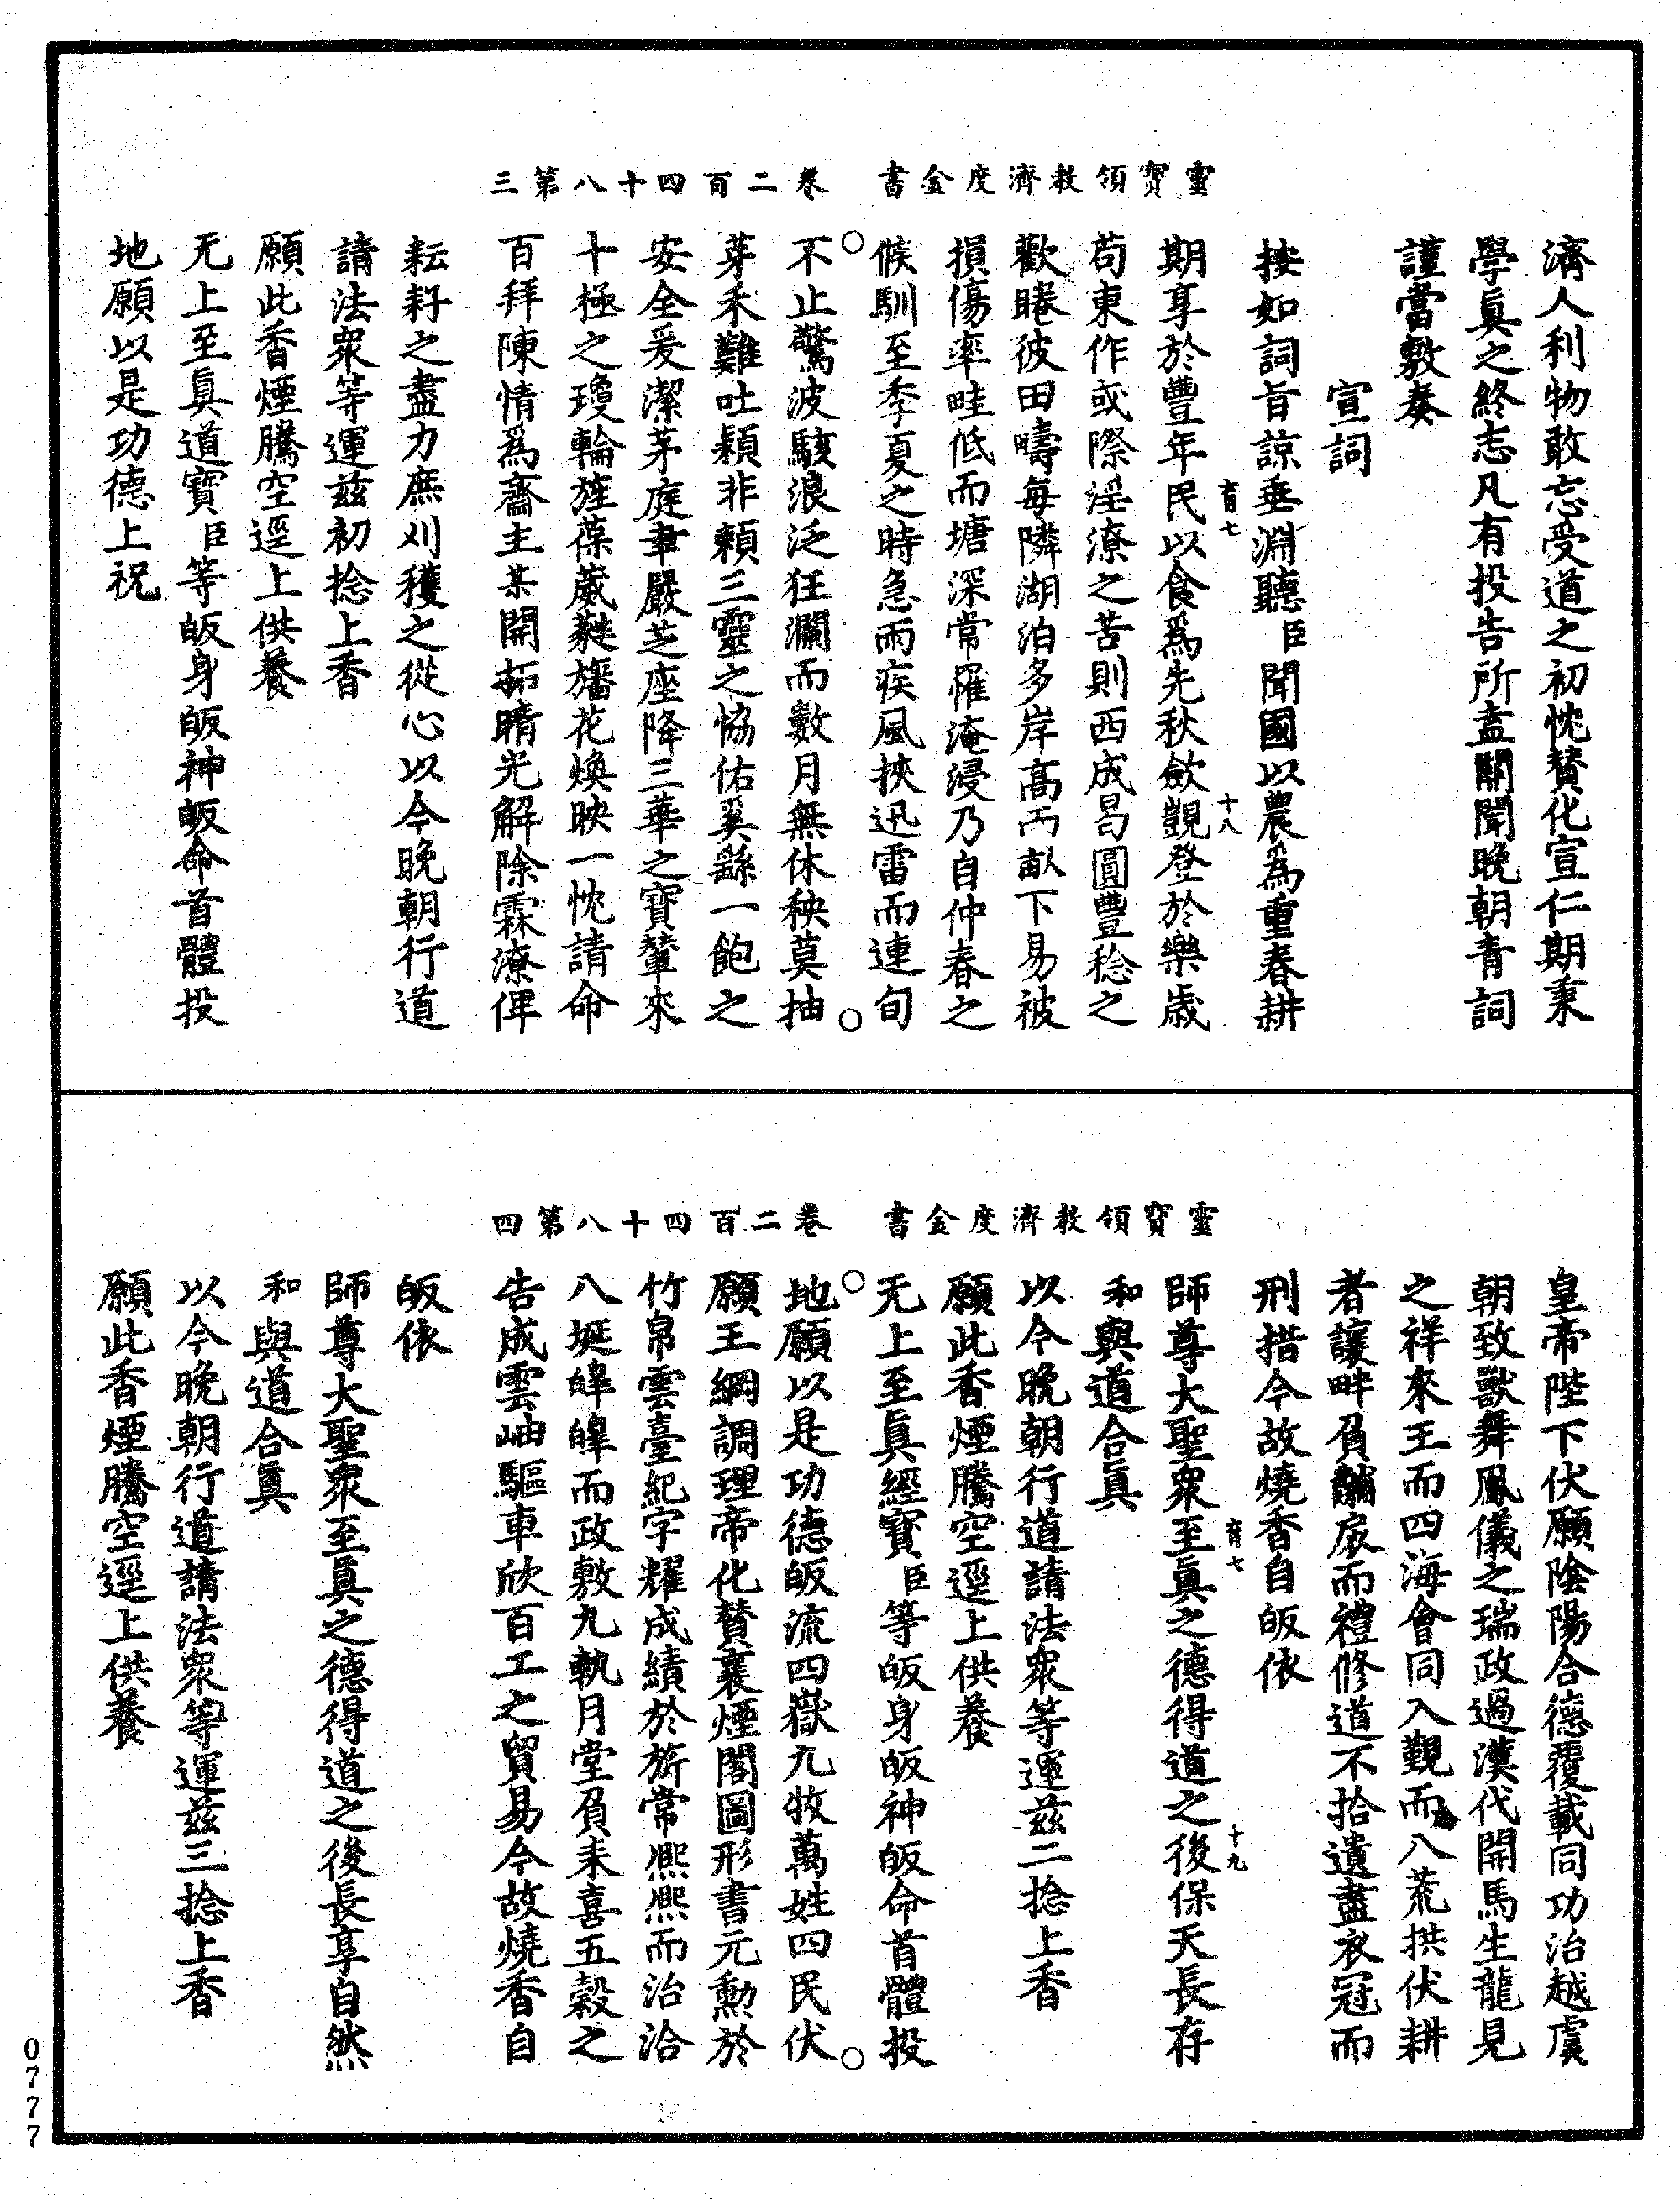 靈寶領教濟度金書　卷二百四十八第三
濟人利物敢忘受道之初忱賛化宣仁期秉
學眞之終志凡有投告所盍關聞晩朝青詞
謹當敷奏
宣詞
按如詞旨諒垂淵聽臣聞國以農爲重春耕
育七
十八
期享於豐年民以食爲先秋斂覬登於樂歲
苟東作或際淫潦之苦則西成曷圓豐稔之
歡睠彼田疇每隣湖泊多岸高而畝下易被
損傷率畦低而塘深常罹淹浸乃自仲春之
候馴至季夏之時急雨疾風挾迅雷而連旬
不止驚波駭浪泛狂瀾而數月無休秧莫抽
芽禾難吐穎非頼三靈之恊佑奚繇一飽之
安全爰潔茅庭聿嚴芝座降三華之寶輦來
十極之瓊輪旌葆葳蕤旛花煥映一忱請命
百拜陳情爲齋主某開拓晴光解除霖潦俾
耘耔之盡力庶刈穫之從心以今晩朝行道
請法衆等運兹初捻上香
願此香煙騰空逕上供養
无上至眞道寶臣等皈身皈神皈命首體投
地願以是功德上祝
靈寶領教濟度金書　卷二百四十八第四
皇帝陛下伏願陰陽合德覆載同功治越虞
朝致獸舞鳳儀之瑞政過漢代開馬生龍見
之祥來王而四海會同入覲而八荒拱伏耕
者讓畔負黼扆而禮修道不拾遺盡衣冠而
刑措今故燒香自皈依
育七
十九
師尊大聖衆至眞之德得道之後保天長存
和與道合眞
以今晩朝行道請法衆等運兹二捻上香
願此香煙騰空逕上供養
无上至眞經寶臣等皈身皈神皈命首體投
地願以是功德皈流四嶽九牧萬姓四民伏
願王綱調理帝化賛襄煙閣圖形書元勳於
竹帛雲臺紀字耀成績於旂常熈熈而治洽
八埏皥皥而政敷九執月堂負耒喜五穀之
告成雲岫驅車欣百工之貿易今故燒香自
皈依
師尊大聖衆至眞之德得道之後長享自然
和與道合眞
以今晩朝行道請法衆等運兹三捻上香
願此香煙騰空逕上供養
0777